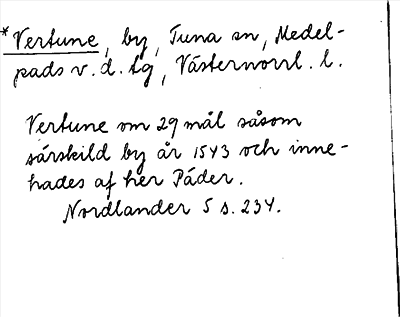 *Vertune, by, Tuna sn, Medel-
pads v. d. tg, Västernorrl. l.
Vertune om 29 mål såsom
särskild by år 1543 och inne-
hades af her Päder.
Nordlander 5 s. 234.